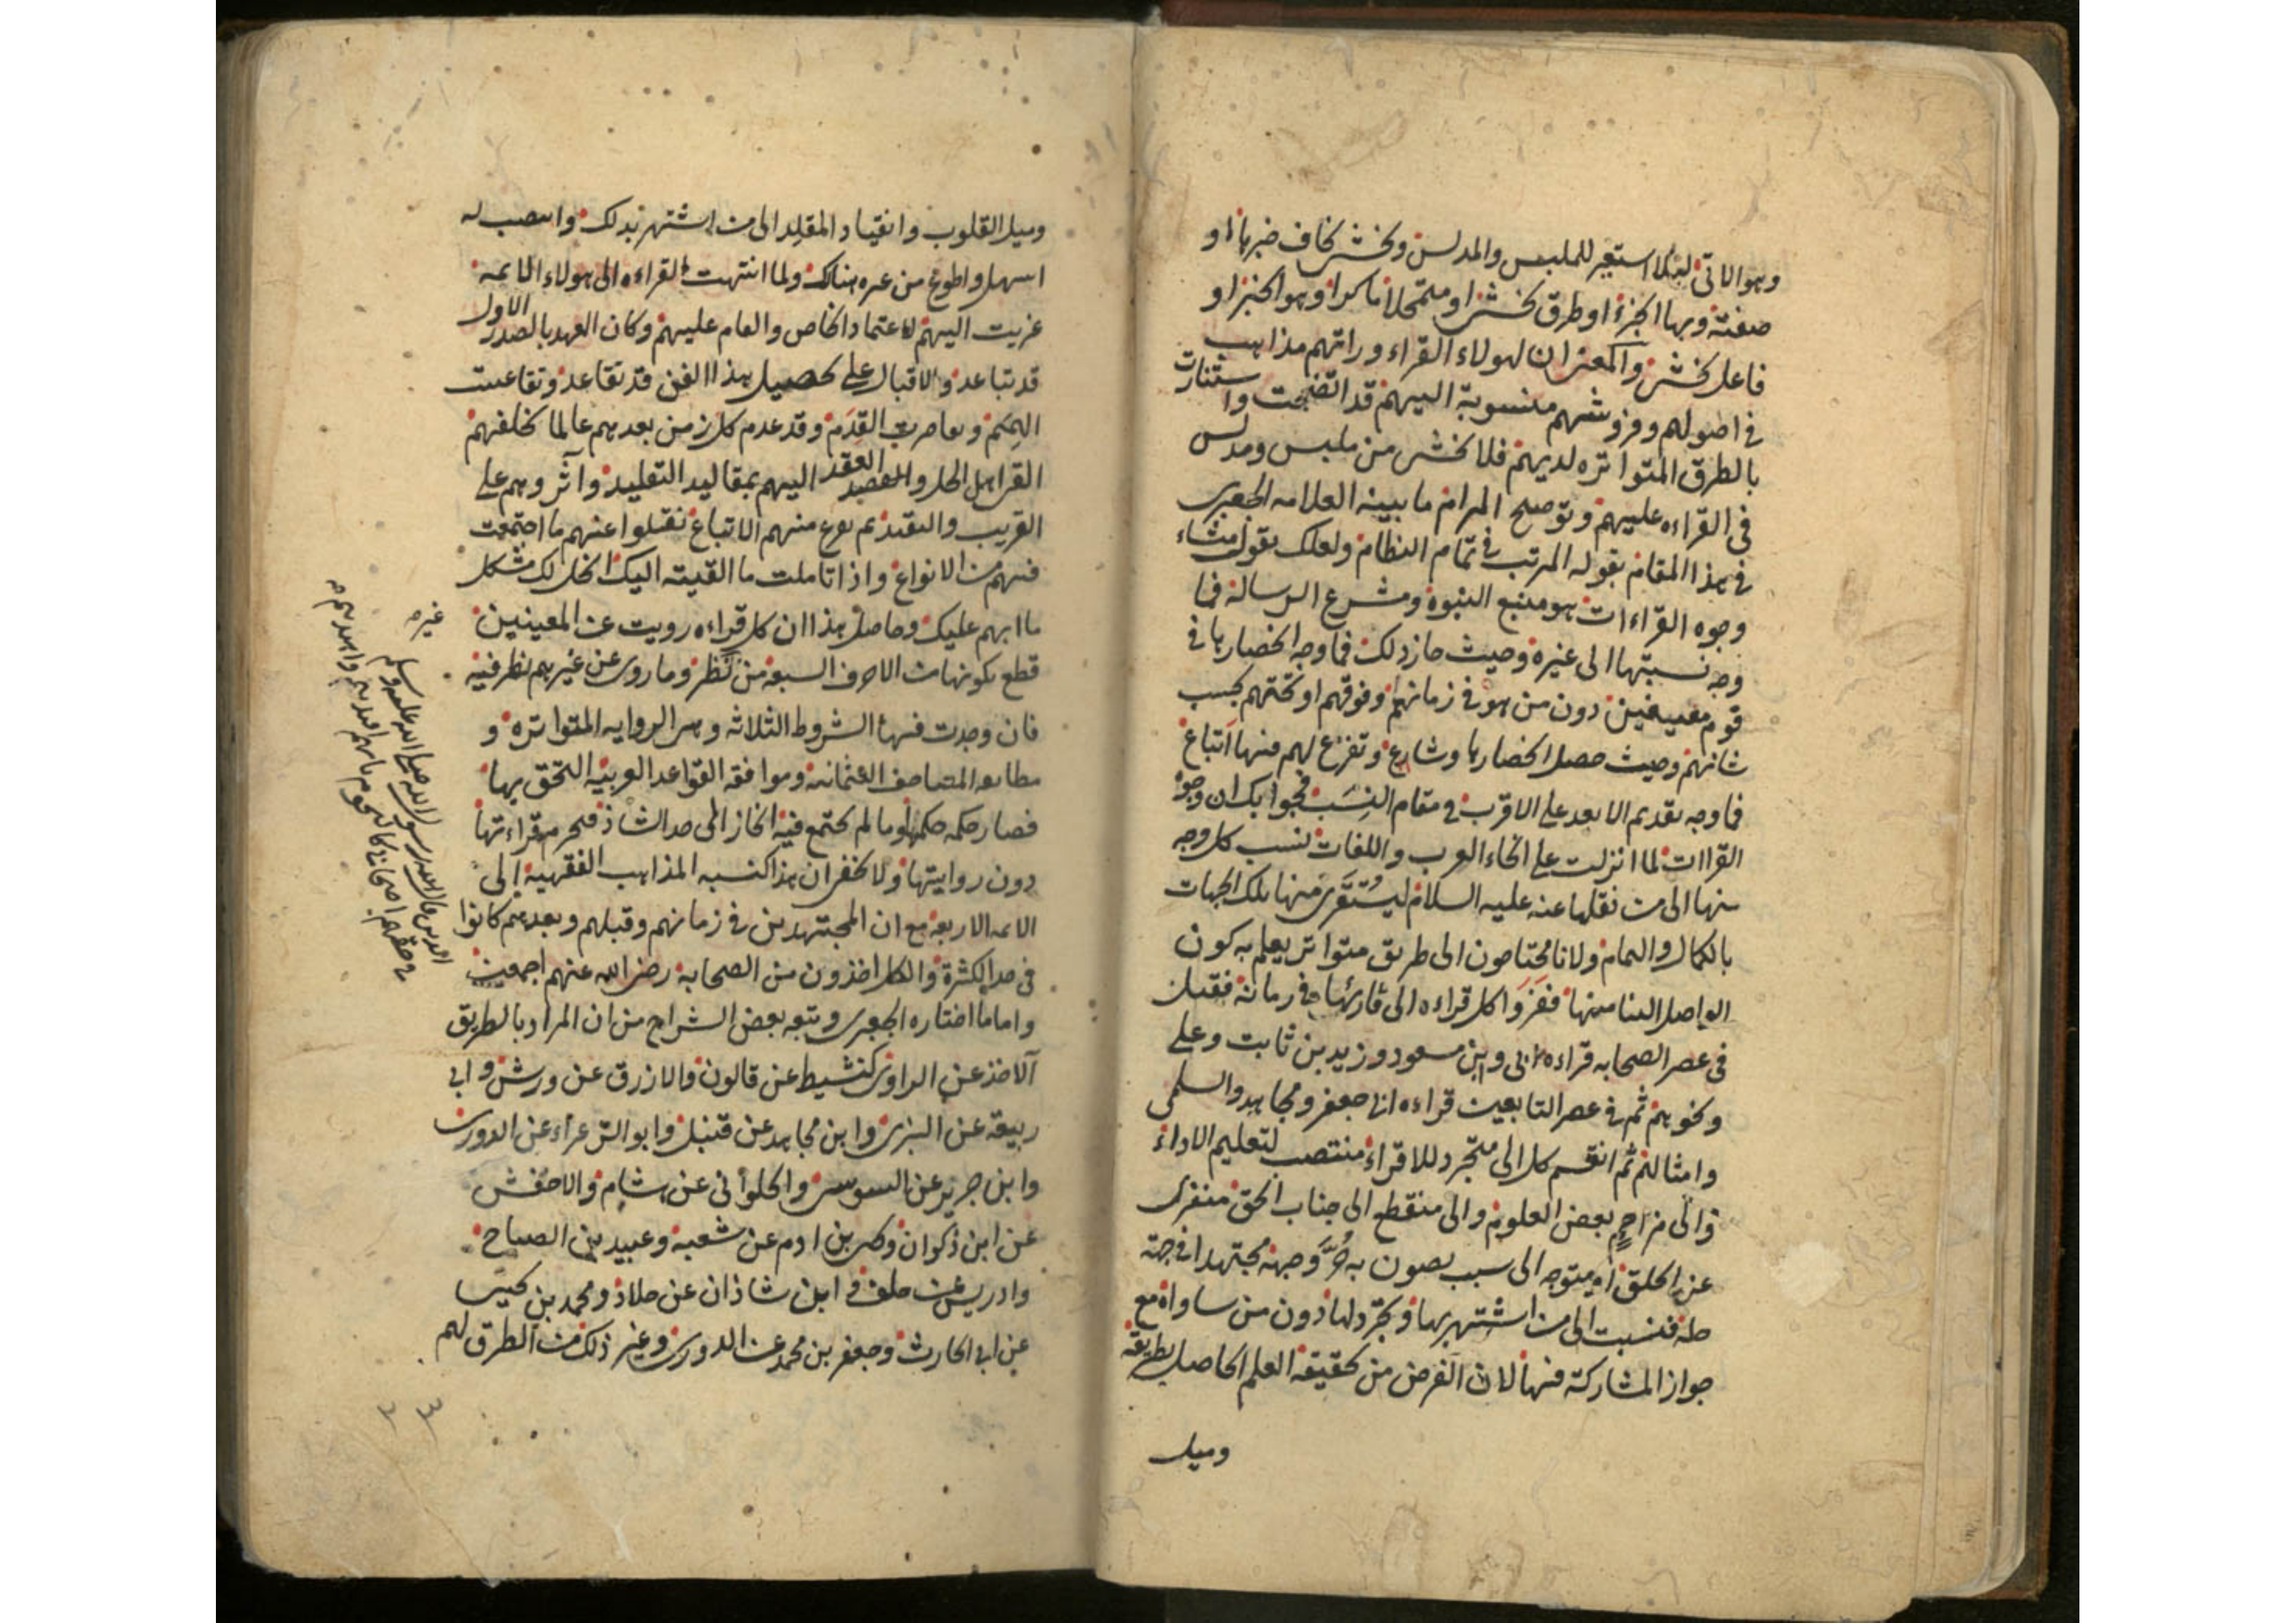 وهو الاتى ليلا استعير للملبس والمدلس ويخشى يخاف خبرها او
صفته وبها الجزء او طرق يخشى او متمحلا ماكرا وهو الخبر او
فاعل يخشى والمعنى ان لهولاء القراء وراتهم مذاهب
فى اصولهم وفروشهم منسوبة اليهم قد اتضحت واستنارت
بالطرق المتواتره لديهم فلا يخشى من ملبس ومدلس
فى القراءه عليهم وتوضيح المرام ما بينه العلامه الجعبرى
فى هذا المقام بقوله المرتب فى تمام النظام ولعلك تقول منشاء
وجوه القراءات هو منبع النبوة ومشرع الرسالة فما
وجه نسبتها الى غيره وحيث جاز ذلك فما وجه انحصارها فى
قوم معينين دون من هو فى زمانهم وفوقهم او تحتهم بحسب
شانهم وحيث حصل انحصارها وشارع وتفرع لهم منها اتباع
فما وجه تقديم الابعد على الاقرب فى مقام النسب فجوابك ان وجوه
القراات لما انزلت على انحاء العرب واللغات نسب كل وجه
منها الى من نقلها عنه عليه السلام ليستقرى منها تلك الجهات
بالكمال والتمام ولانا محتاجون الى طريق متواتر يعلم به كون
الواصل الينا منها فعزوا كل قراءه الى قارئها فى زمانه فقيل
فى عصر الصحابه قراءه ابى وابن مسعود وزيد بن ثابت وعلى
ونحوهم ثم فى عصر التابعين قراءه ابى جعفر ومجاهد والسلمى
وامثالهم ثم انقسم كل الى متجرد للاقراء منتصب لتعليم الاداء
والى مزاحم بعض العلوم والى منقطع الى جناب الحق منفرد
عن الخلق او متوجه الى سبب يصون به حر وجهه مجتهدا فى جهة
حله فنسبت الى من اشتهر بها وتجرد لها دون من ساواه مع
جواز المشاركة فيها لان الغرض من تحقيقه العلم الحاصل بطريقه
وميل
وميل القلوب وانقياد المقلد الى من اشتهر بذلك وانتصب له
اسهل واطوع من غيره هنالك ولما انتهت القراءه الى هولاء الائمه
عزيت اليهم لاعتماد الخاص والعام عليهم وكان العهد بالصدر الاول
قد تباعد والاقبال على تحصيل هذا الفن قد تقاعد وتقاعست
الهمم وتقاصرت القدم وقد عدم كل زمن بعدهم عالما يخلفهم
القى اهل الحل والعقد اليهم بمقاليد التقليد وآثروهم على
القريب والبعيد ثم تفرع منهم الاتباع نقلوا عنهم ما اجتمعت
فيهم من الانواع واذا تاملت ما القيته اليك انحل لك مشكل
ما ابهم عليك وحاصل هذا ان كل قراءه رويت عن المعينين
قطع بكونها من الاحرف السبعه من نظر وما روى عن غيرهم نظر فيه
فان وجدت فيها الشروط الثلاثه وهى الروايه المتواتره و
مطابقه المصاحف العثمانيه وموافقه القواعد العربيه التحق بها
فصار حكمه حكمها وما لم يجتمع فيه انحاز الى حد الشاذ فيحرم قراءتها
دون روايتها ولا يخفى ان هذا كنسبه المذاهب الفقهية الى
الائمه الاربعة مع ان المجتهدين فى زمانهم وقبلهم وبعدهم كانوا
فى حد الكثرة والكل اخذون من الصحابة رضى الله عنهم اجمعين
واما ما اختاره الجعبرى وتبعه بعض الشراح من ان المراد بالطريق
الآخذ عن الراوى كنشيط عن قالون والازرق عن ورش وابى
ربيعة عن البزى وابن مجاهد عن قنبل وابو الزعراء عن الدورى
وابن جرير عن السوسى والحلوانى عن هشام والاخفش
عن ابن ذكوان ويحيى بن ادم عن شعبة وعبيد بن الصباح
وادريس عن خلف وابن شاذان عن خلاد ومحمد بن يحيى
عن ابى الحارث وجعفر بن محمد عن الدورى وغير ذلك من الطرق لهم
غيره
الذين قال لهم رسول الله صلى الله عليه وسلم
فى حقهم اصحابى كالنجوم بايهم اقتديتم واهتديتم